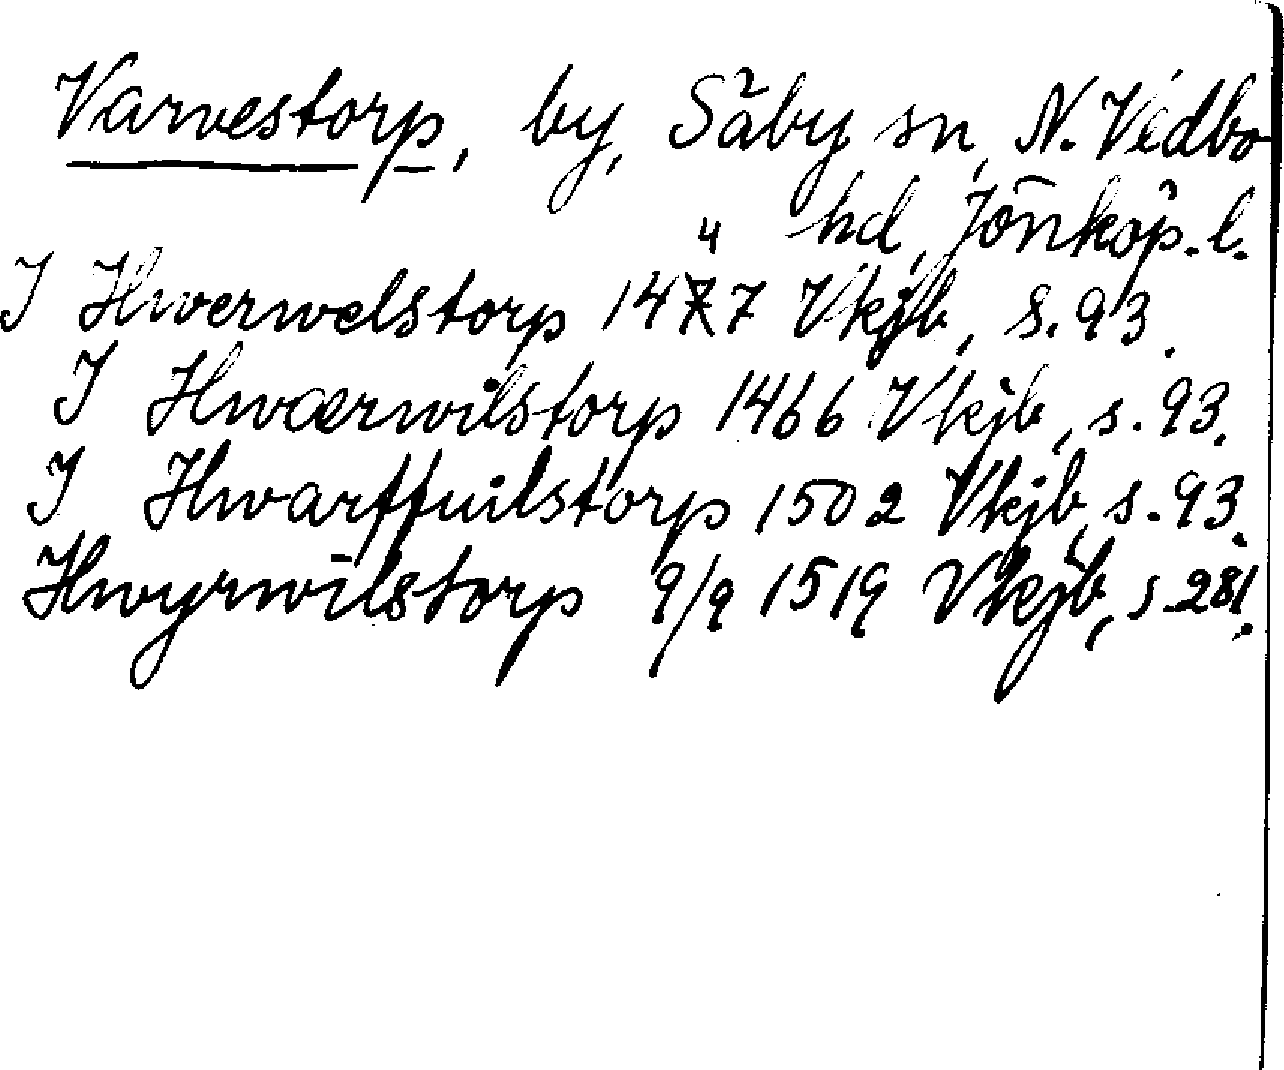 Varvestorp, by, Säby sn, N. Vedbo
hd, Jönköp. l.
I Hwerwelstorp 1447 Vkjb, s. 93.
I Hwærwilstorp 1466 Vkjb, s. 93.
I Hwarffuilstorp 1502 Vkjb, s. 93.
Hwyrwilstorp 9/9 1519 Vkjb, s. 281.